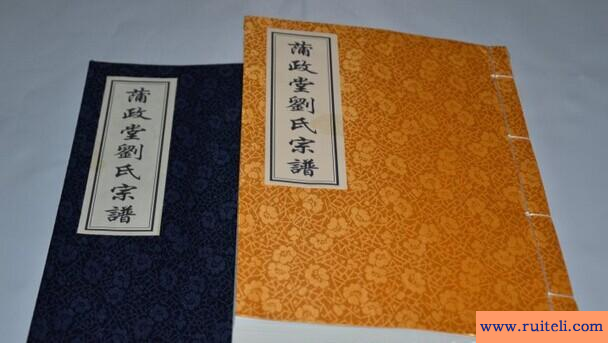 蒲政堂劉氏宗譜
蒲政堂劉氏宗譜
www.ruiteli.com